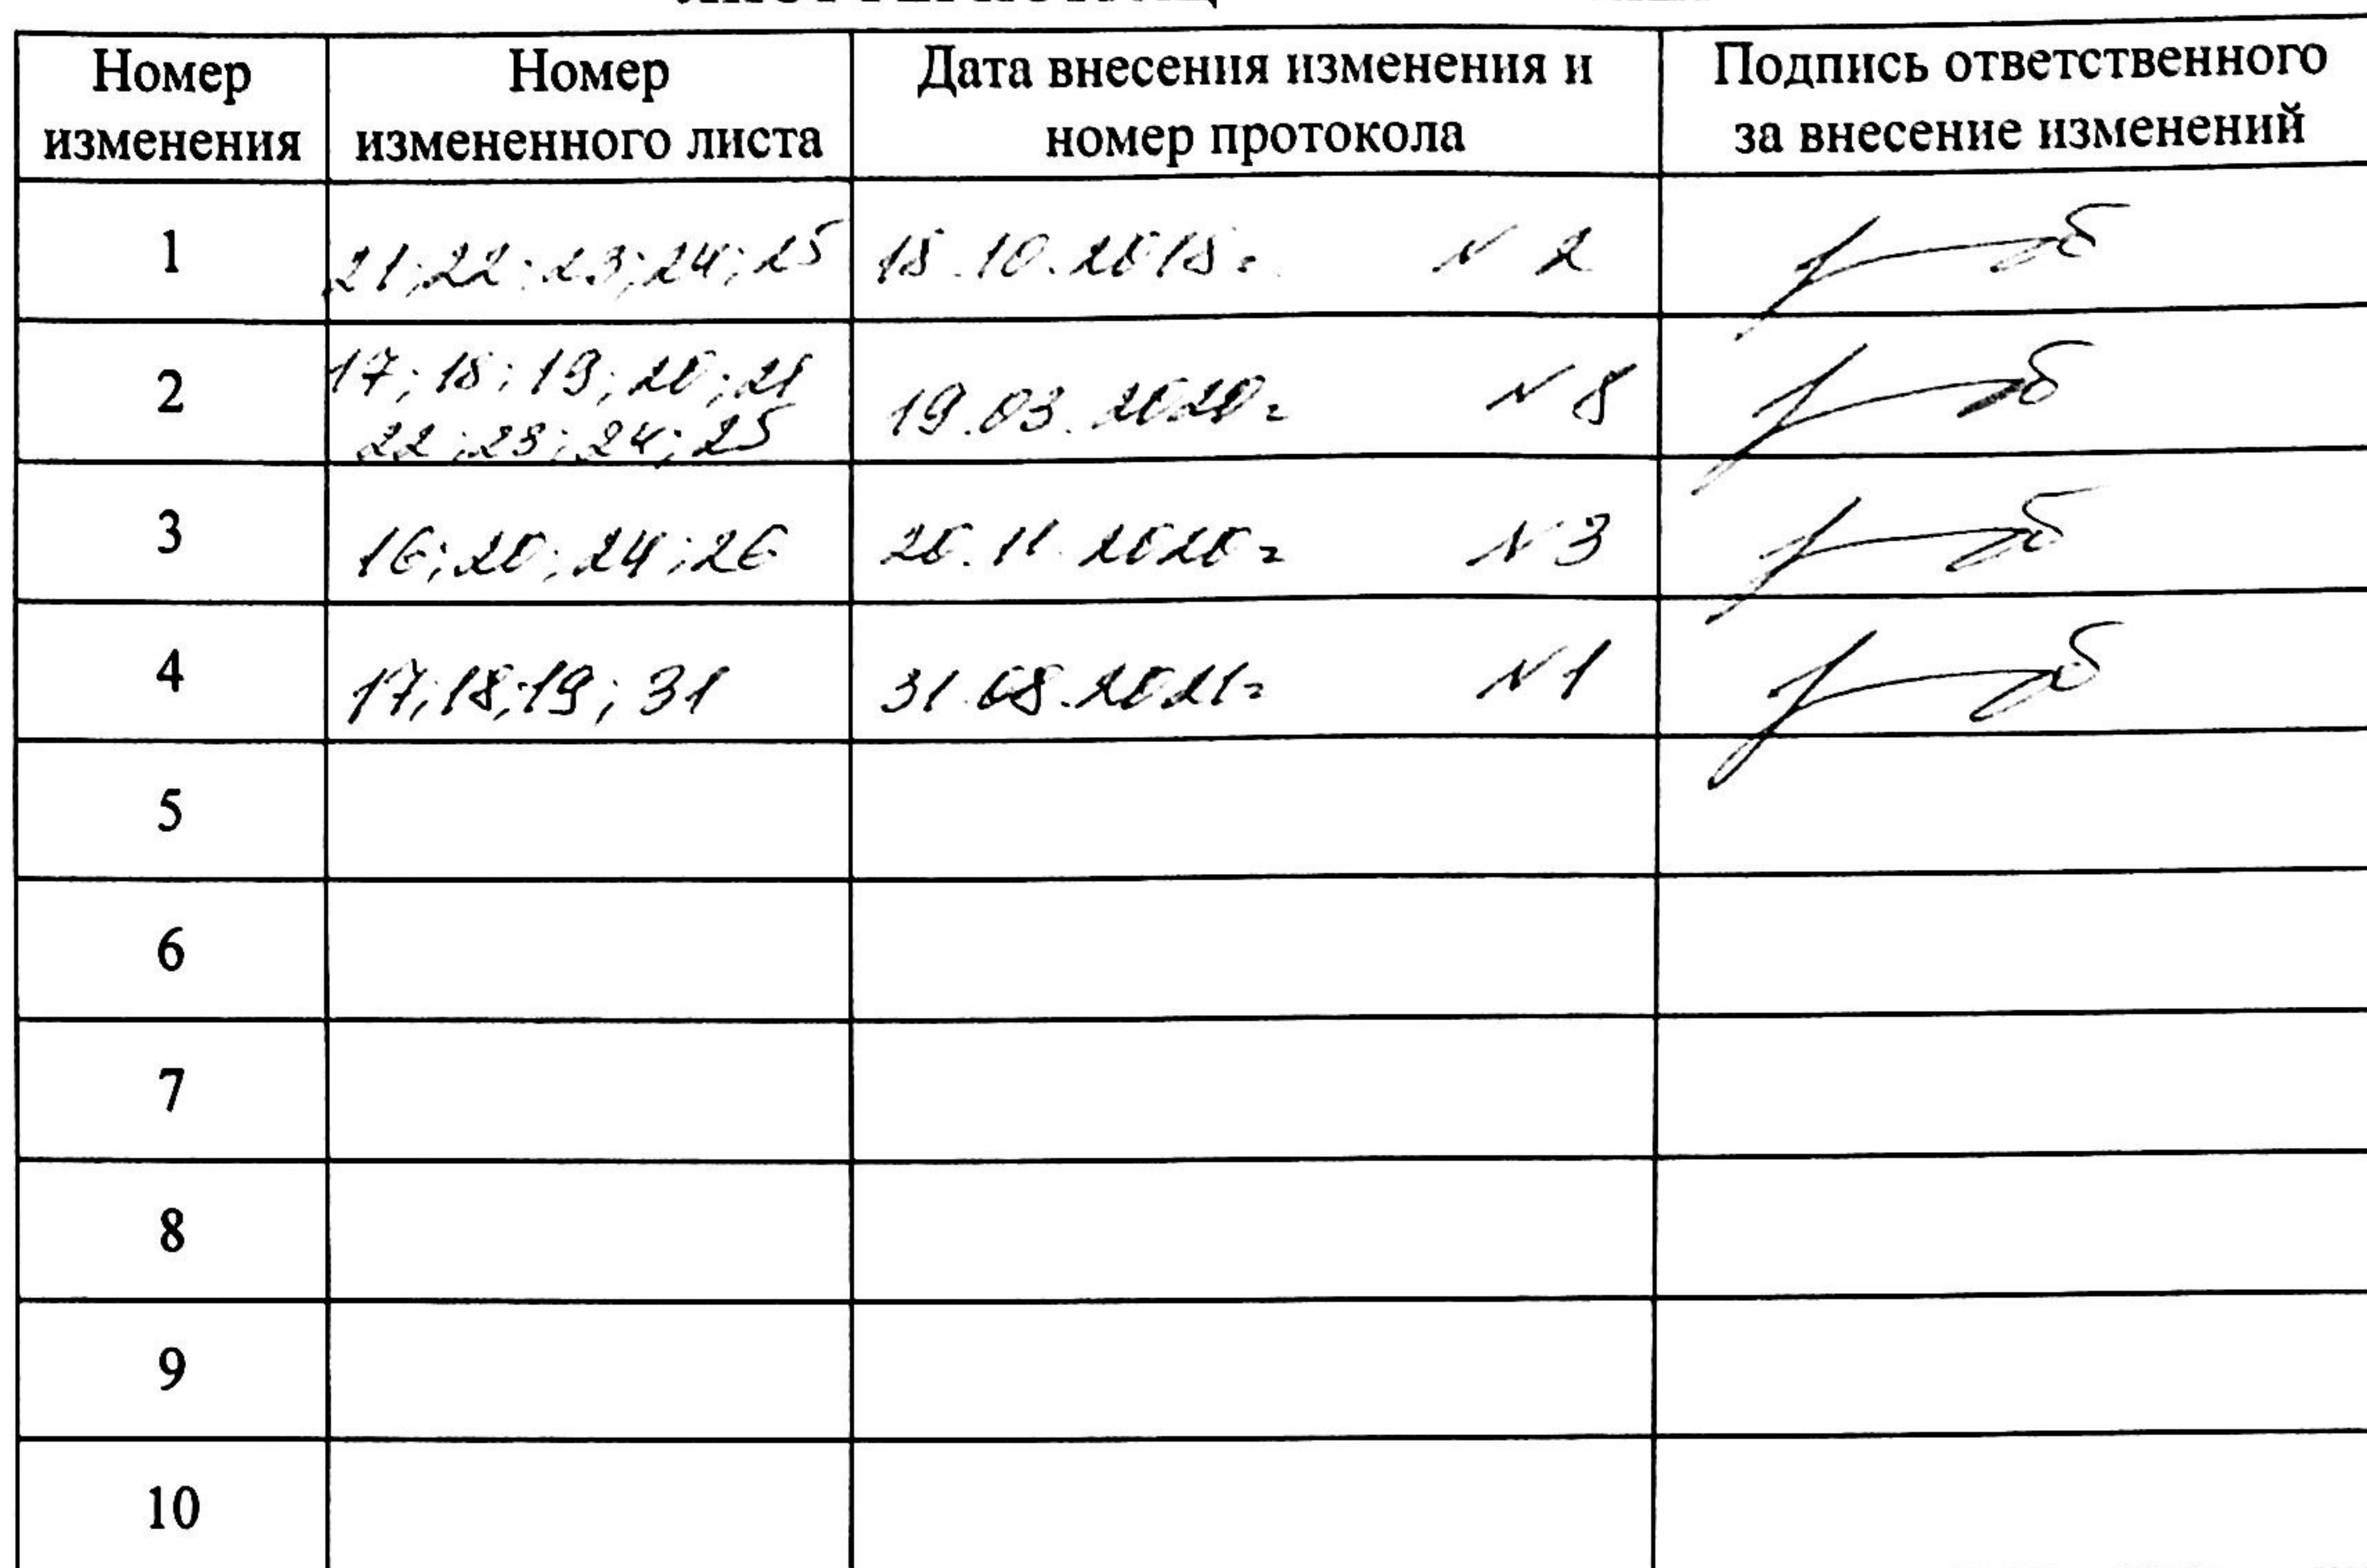 Номер изменения
Номер измененного листа
Дата внесения изменения и номер протокола
Подпись ответственного за внесение изменений
1 21;22;23;24;25 18.10.2018г N 2
2 17;18;19;20;21
22;23;24;25 19.03.2020г N 8
3 16;20;24;26 20.11.2020г N 3
4 17;18;19;31 31.08.2021г N 1
5
6
7
8
9
10